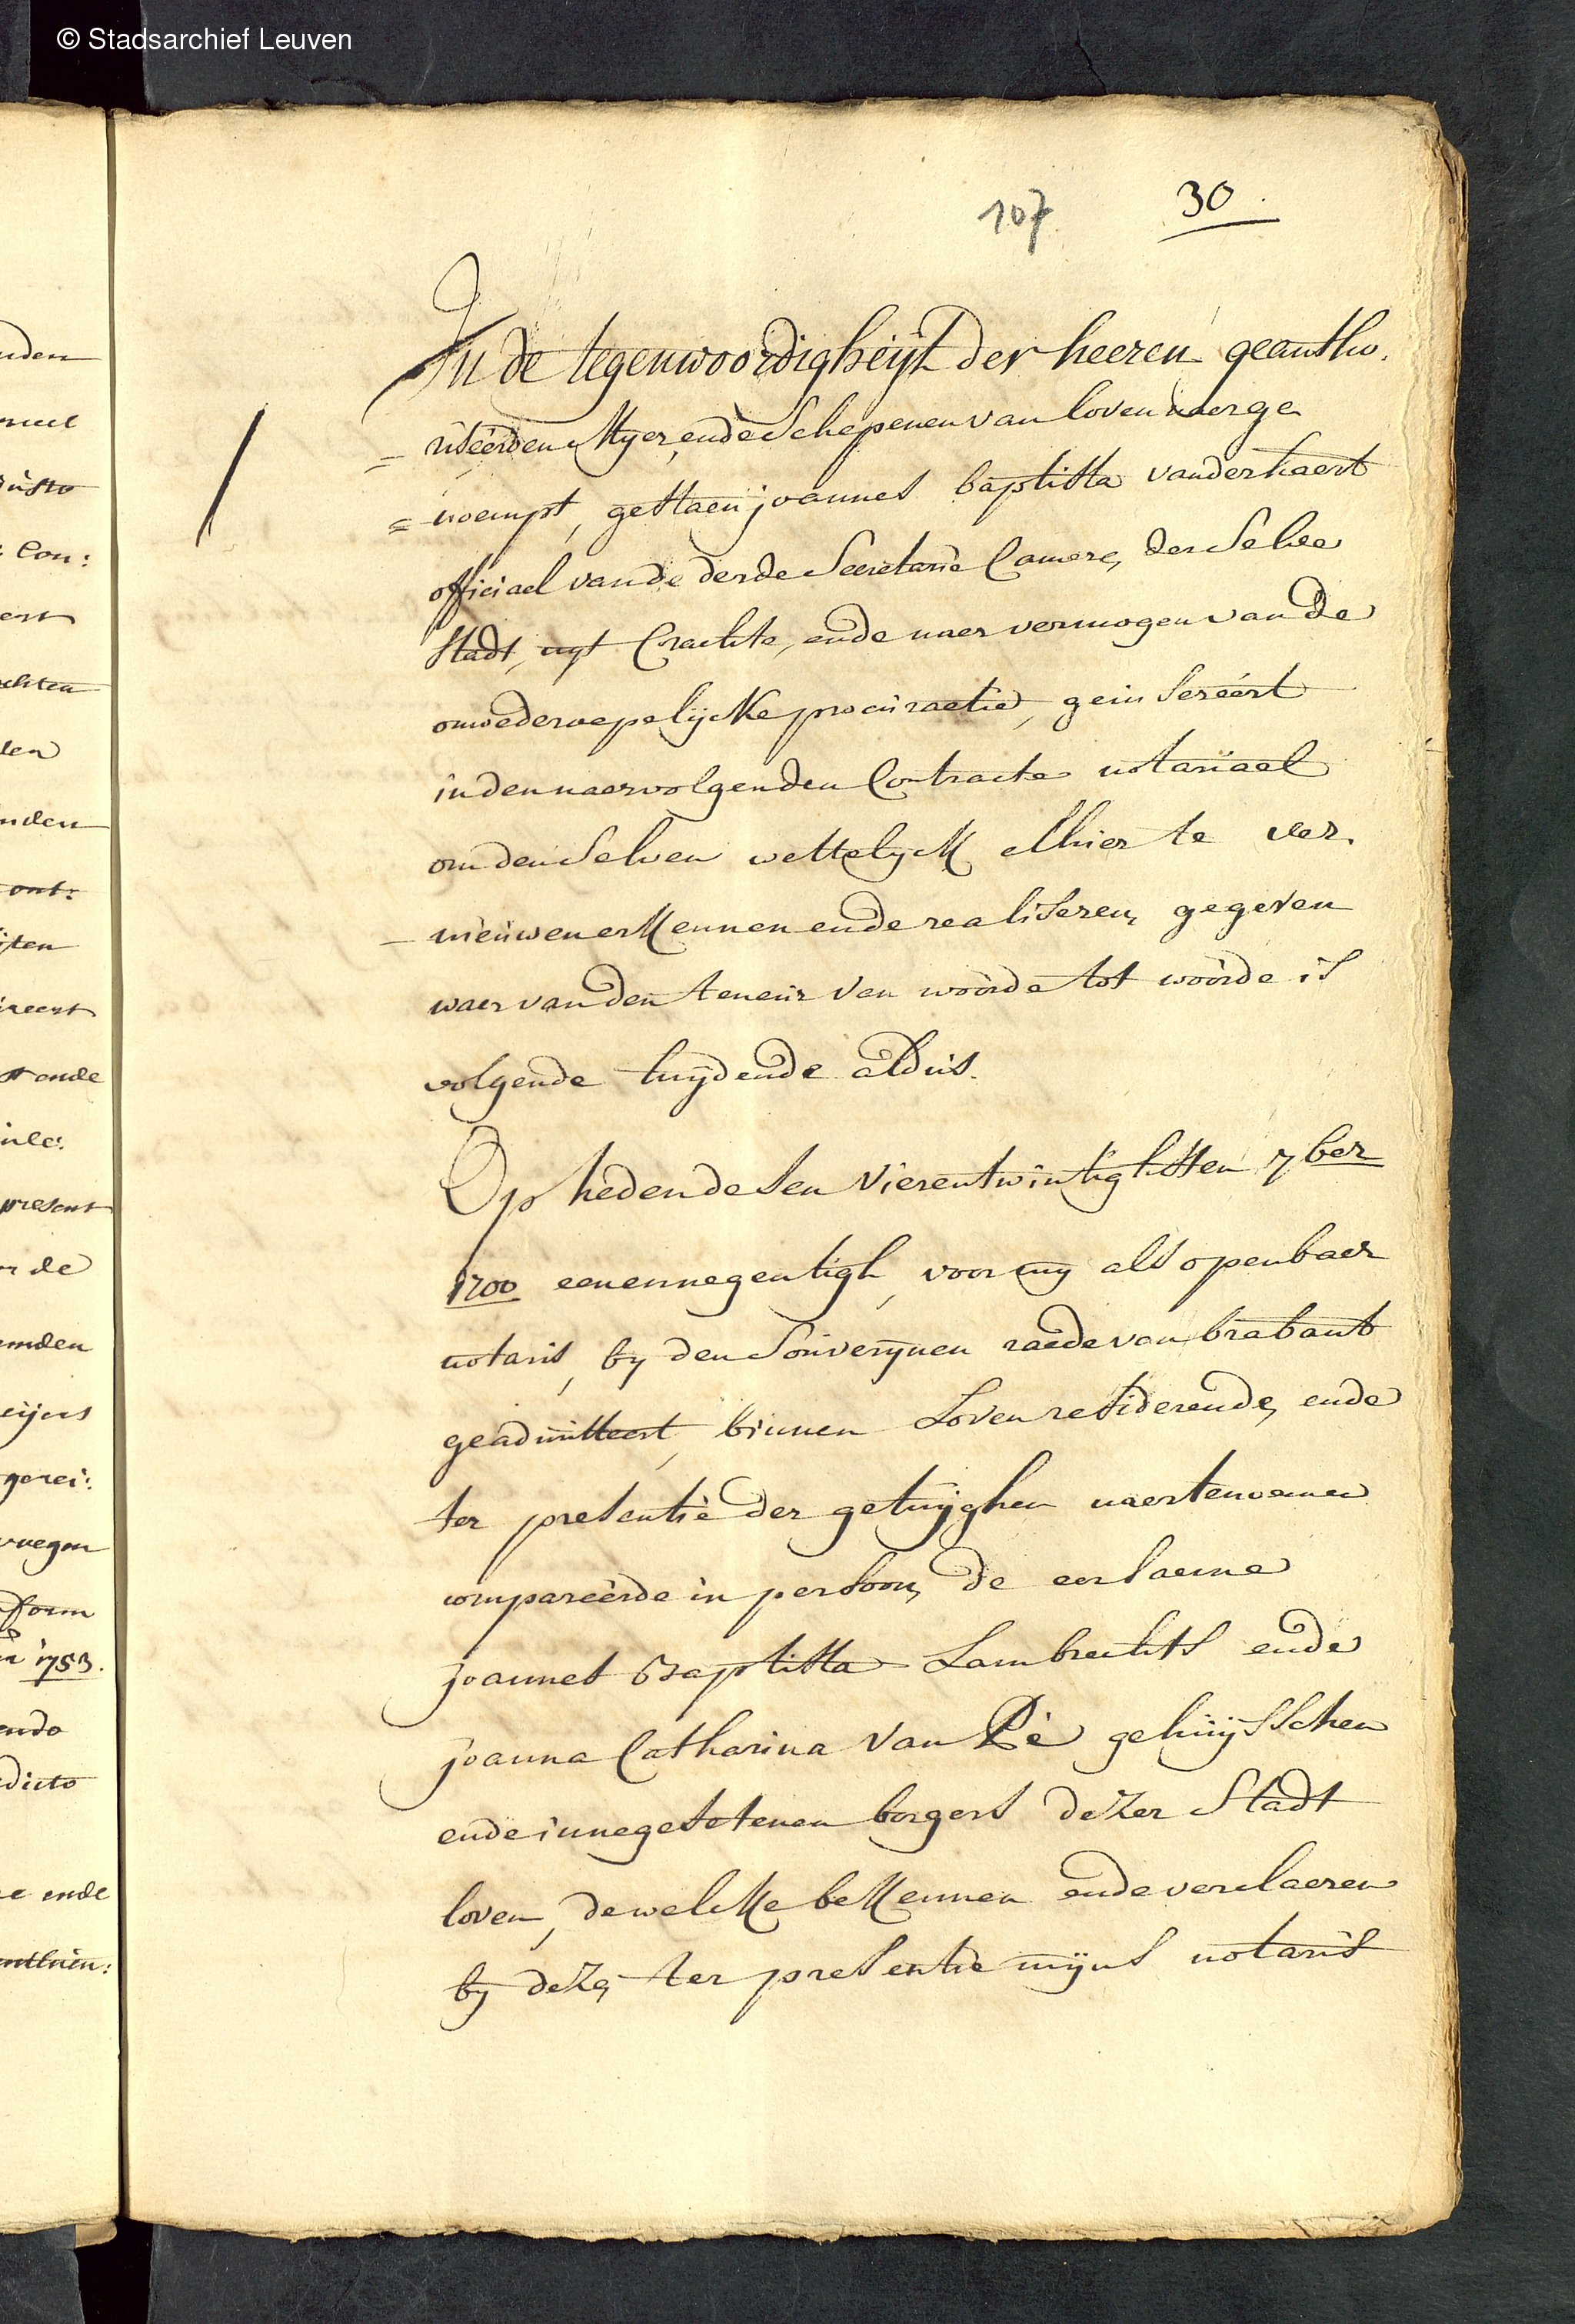 © Stadsarchief Leuven
107
30
In de tegenwoordigheijt der heeren geautho.
= riseerden Myer, ende Schepenen van loven naerge
= noempt, gestaen joannes baptista vanderhaert
officiael van de derde Secretarie Camere, der Selve
Stadt, uyt Crachte, ende naer vermogen van de
onwederoepelijcke procuraetie, geinsereért
in den naervolgenden Contracte notariael
om den Selven wettelyck alhier te ver.
- nieuwen erkennen ende realiseren, gegeven
waer van den teneur van woorde tot woorde is
volgende luijdende aldus.
Op heden desen vierentwintighsten 7ber
1700 eenennegentigh, voor my als openbaer
notaris, by den Souverynen raede van brabant
geadmitteert, binnen Loven residerende, ende
ter presentie der getuijghen naertenoemen
compareérde in persoon, de eersaeme
joannes Baptista Lambrechts ende
joanna Catharina van Pé gehuijsschen
ende innegesetenen borgers dezer Stadt
loven, dewelcke bekennen ende verclaeren
by deze, ter presentie mijns notaris
uden
Con:
den
nden
ont:
ende
present
de
emden
form
1753.
ende